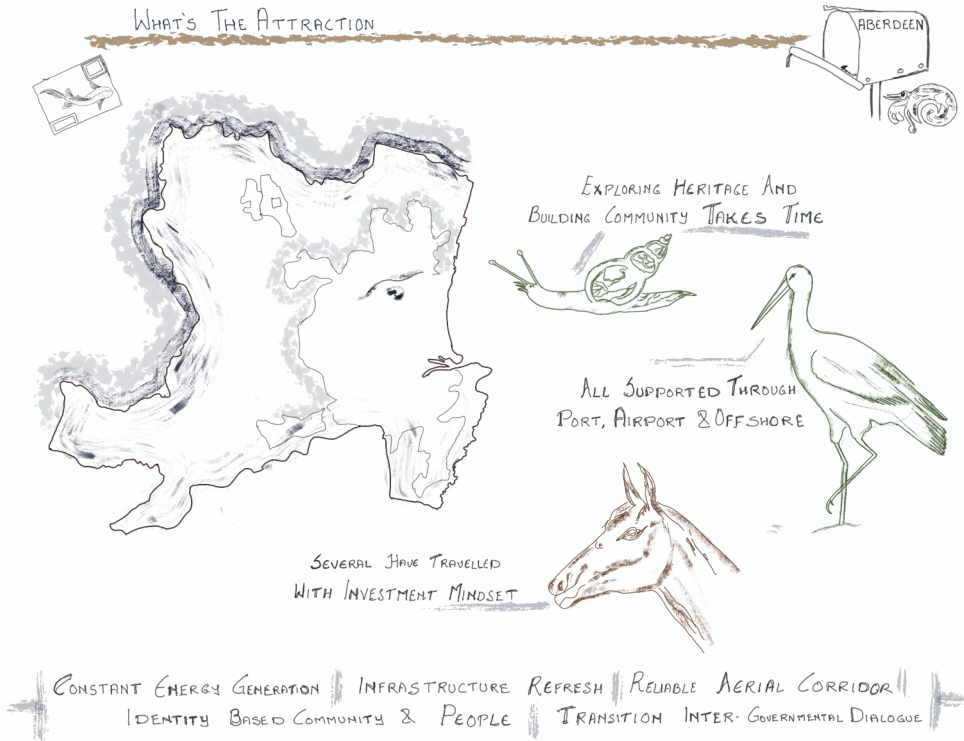 What's The Attraction
ABERDEEN
Exploring Heritage And
Building Community Takes Time
All Supported Through
Port, Airport & Offshore
Several Have Travelled
With Investment Mindset
Constant Energy Generation
Infrastructure Refresh
Reliable Aerial Corridor
Identity Based Community & People
Transition Inter-Governmental Dialogue